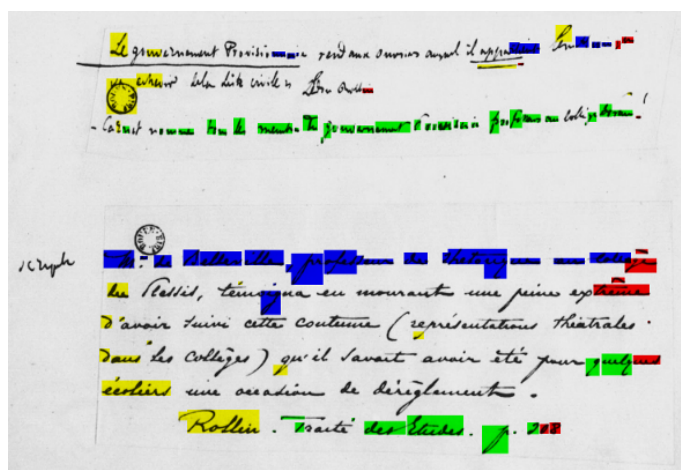 Le gouvernement Provisoire rend aux ouvriers auquel il appartient
de la liste civile
Carnot nomme tous les membres du gouvernement Provisoire professeurs au collège
M. de professeur de rhétorique au collège
du Plessis, témoigna en mourant une peine extrême
d'avoir suivi cette coutume (représentations théatrales
dans les collèges) qu'il savait avoir été pour quelques
écoliers une occasion de dérèglement.
Rollin. Traité des Etudes. p.